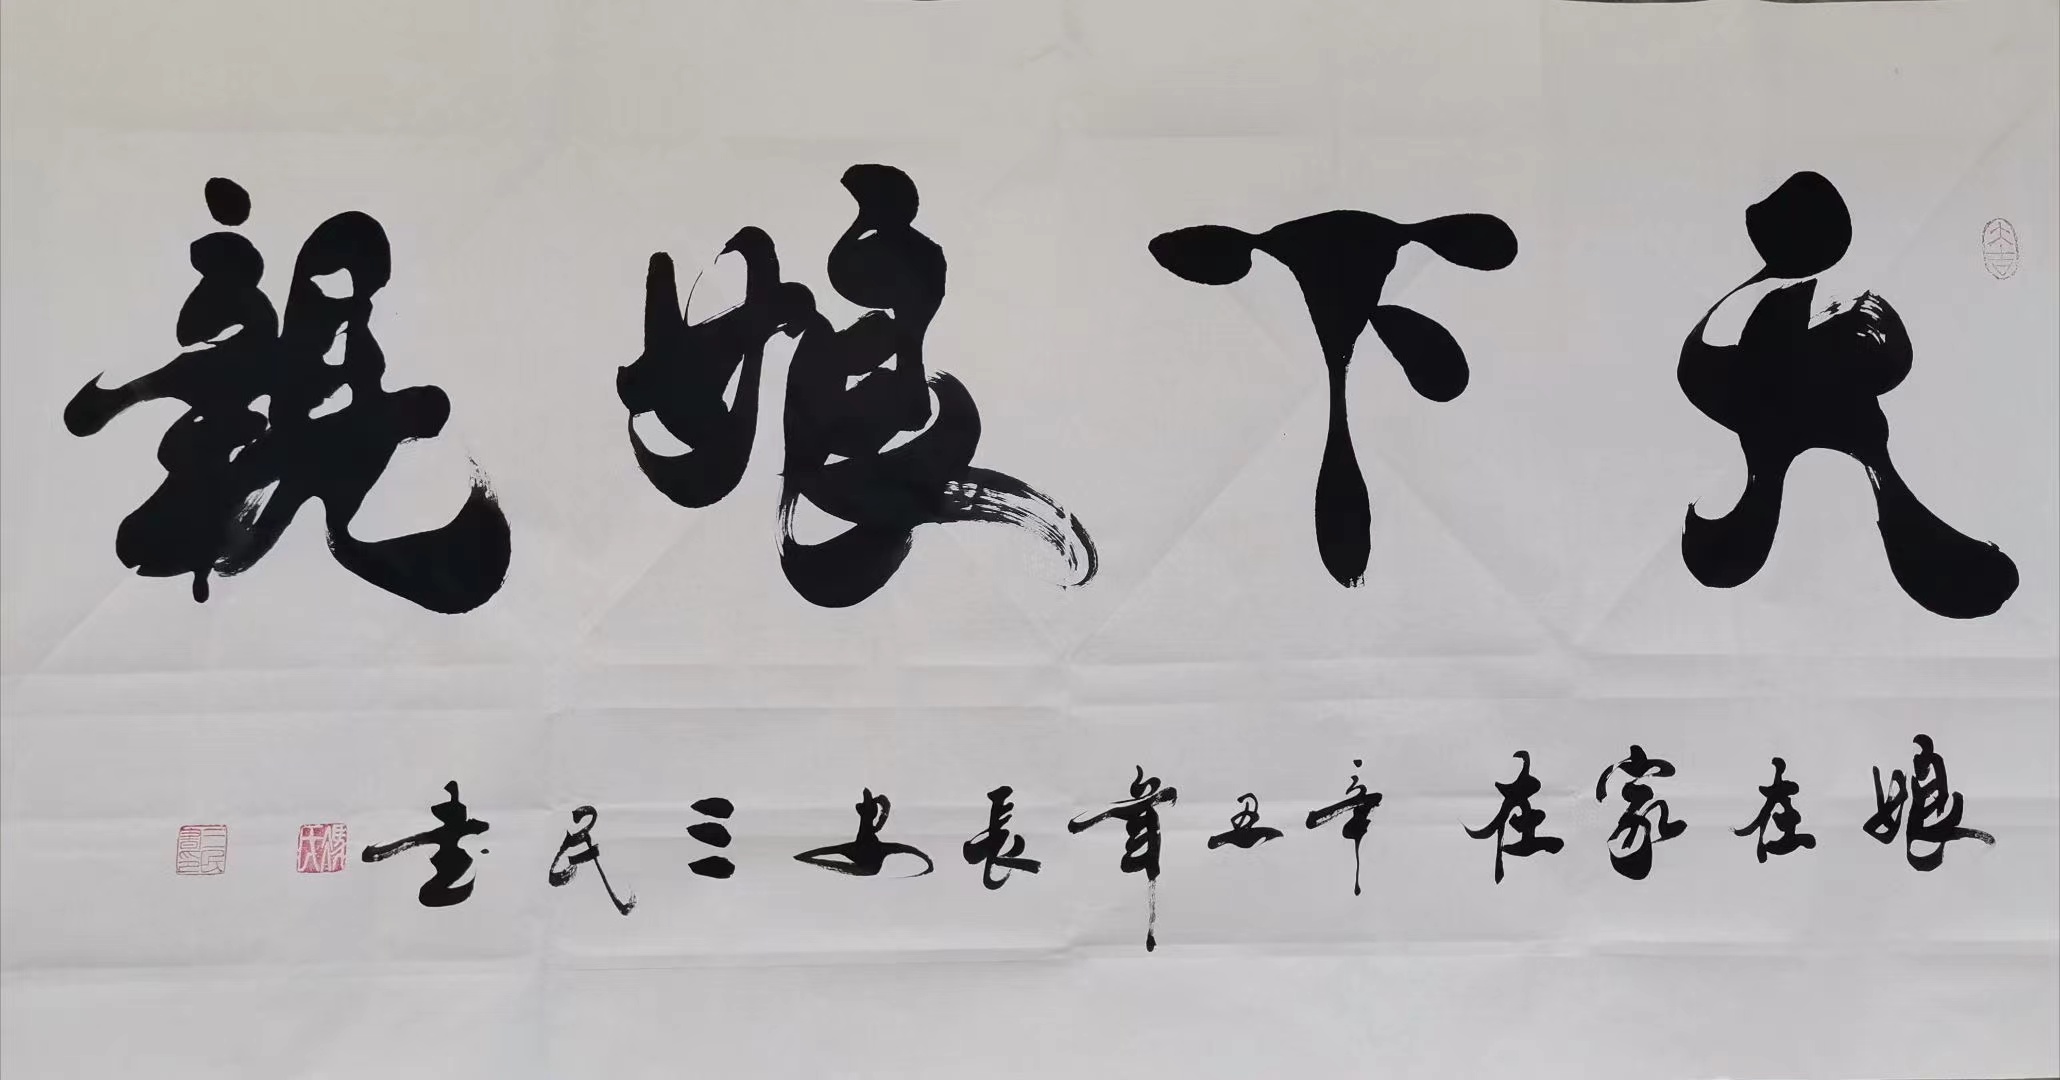 天下娘親
娘在家在辛丑年長安三民書